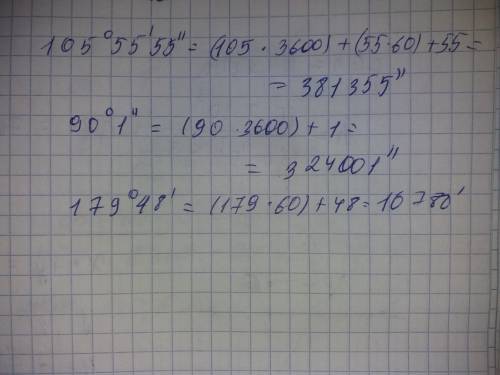 105°55'55" = (105 · 3600) + (55·60) + 55 =
= 381355"
90°1" = (90 · 3600) + 1 =
= 324001"
179°48' = (179 · 60) + 48 = 10780'